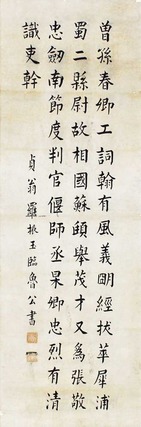 曾孫春卿工詞翰有風義明經拔萃犀浦
蜀二縣尉故相國蘇頲舉茂才又為張敬
忠劔南節度判官偃師丞杲卿忠烈有清
識吏幹
貞翁羅振玉臨魯公書